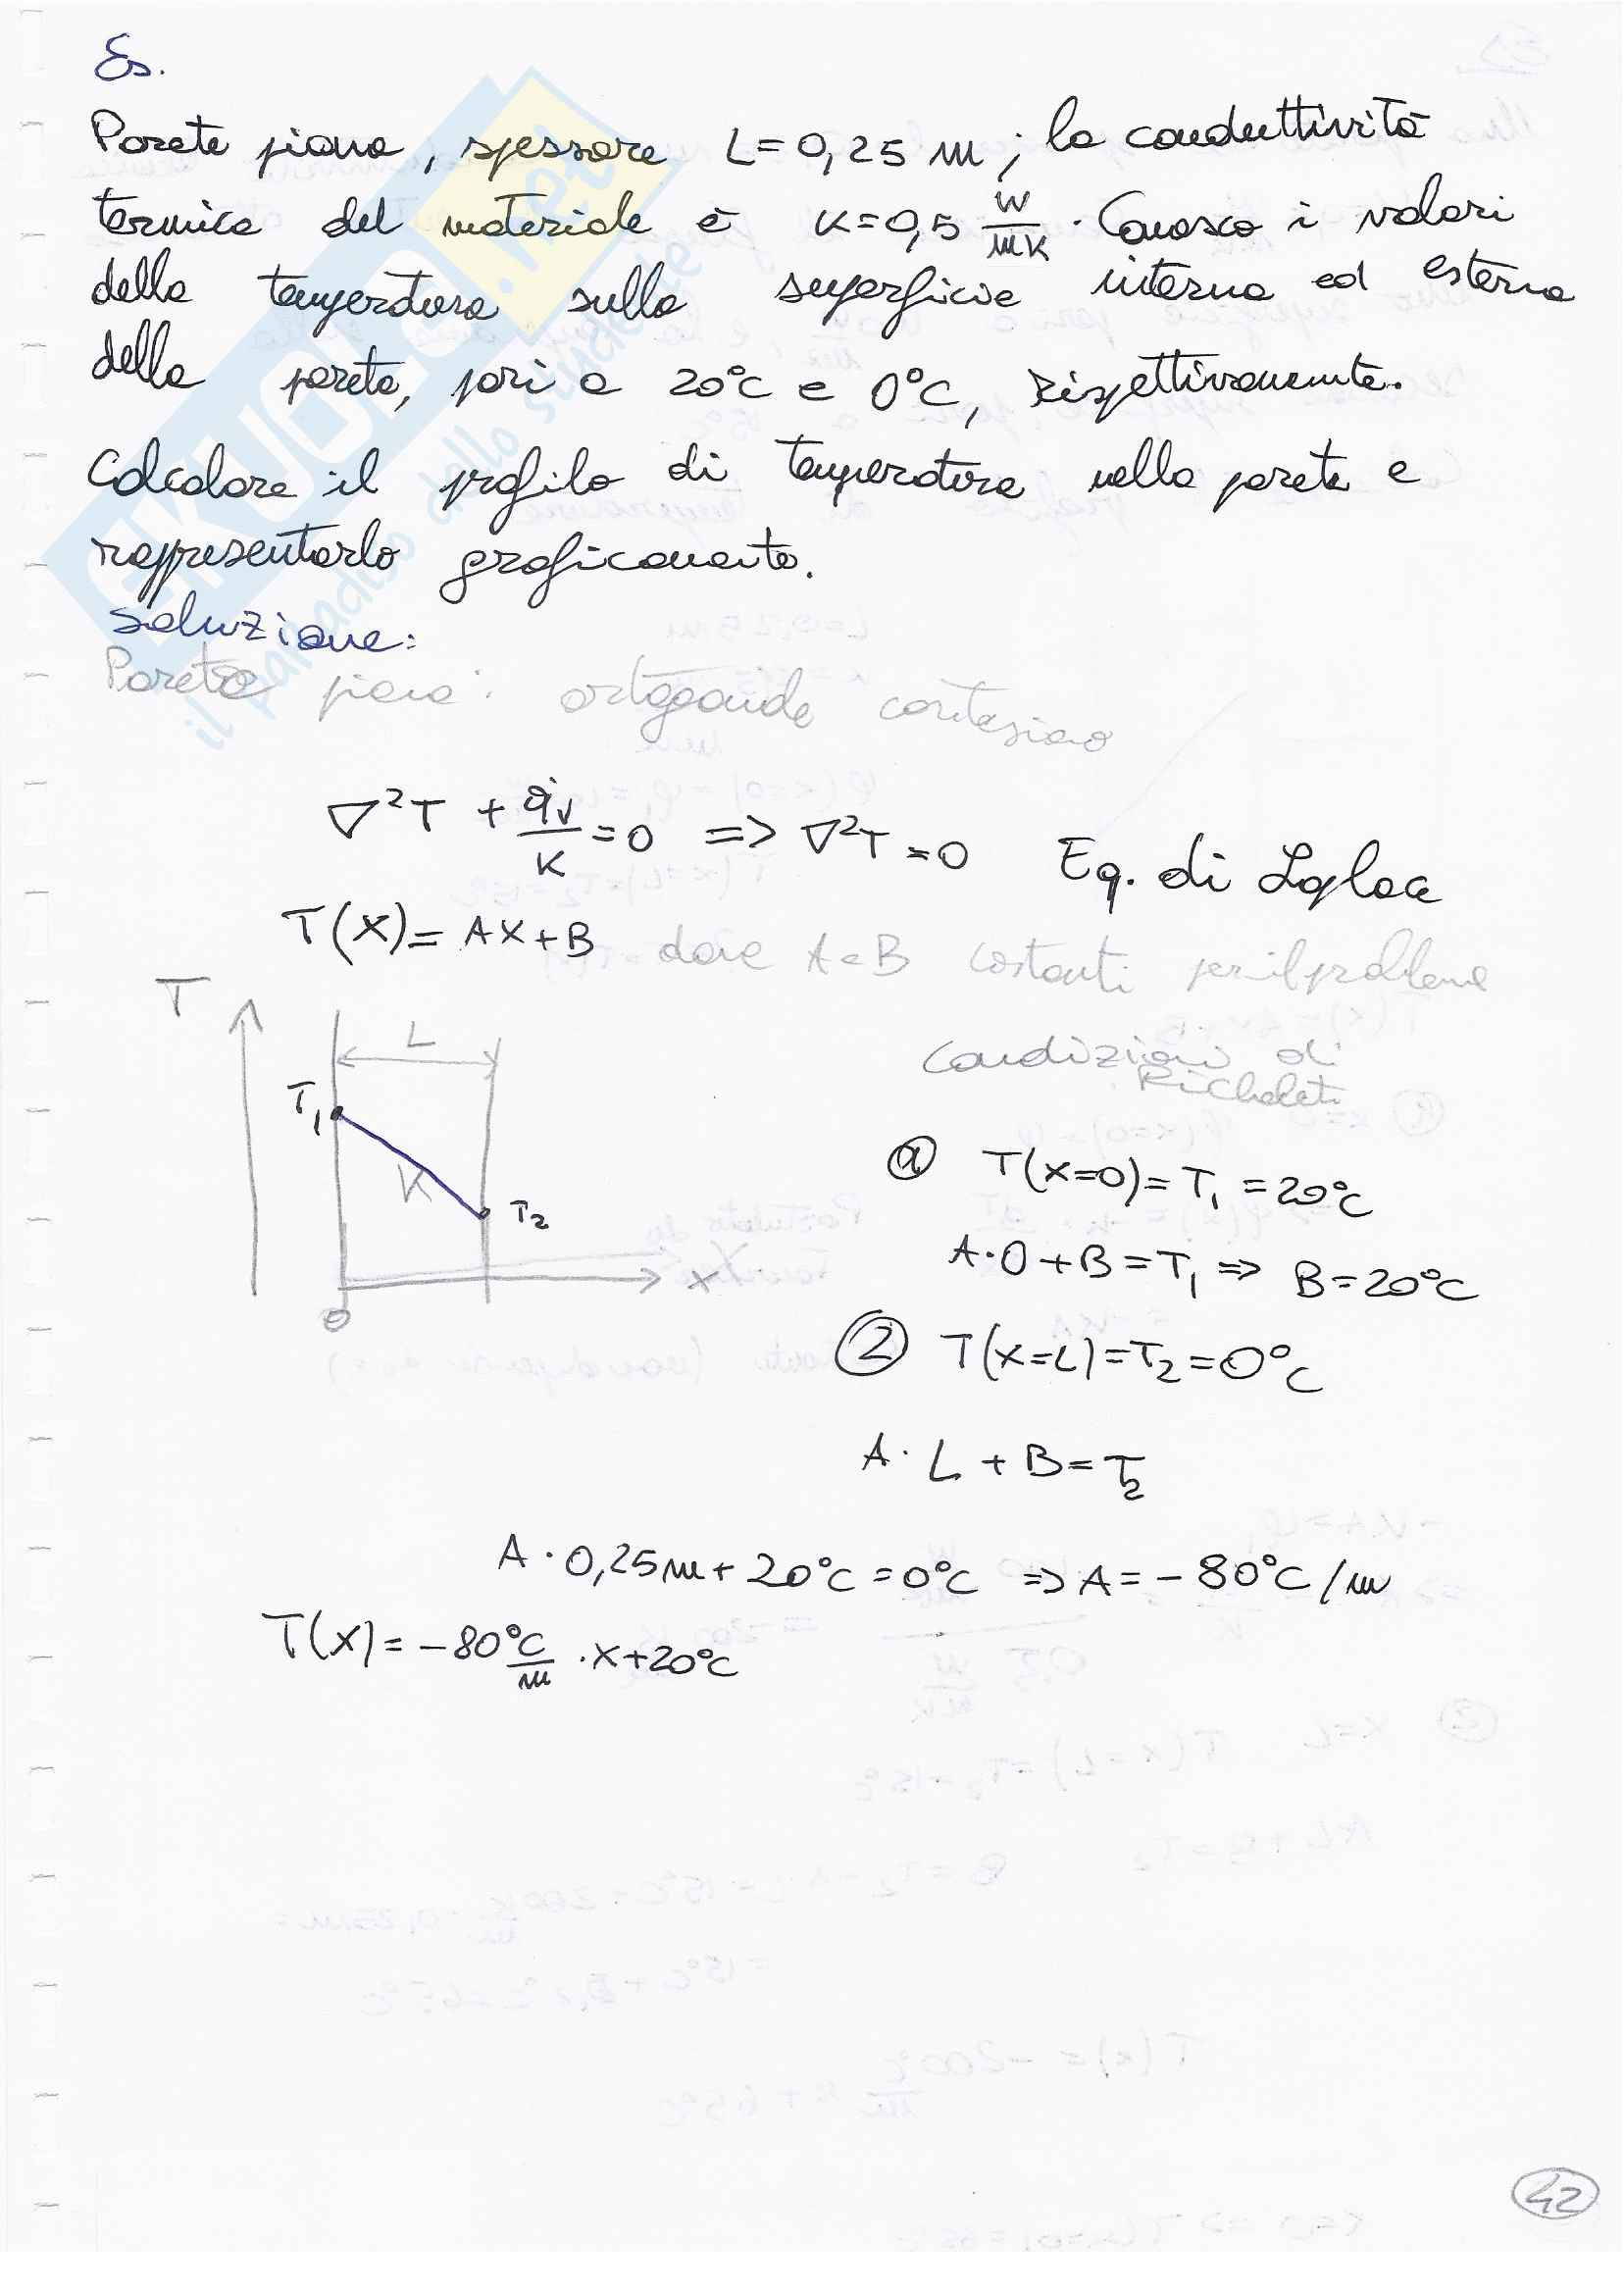 Es.
Parete piana, spessore L=0,25 m; la conduttività
termica del materiale è K=0,5 W/mK. Conosco i valori
della temperatura sulla superficie interna ed esterna
della parete, pari a 20°C e 0°C, rispettivamente.
Calcolare il profilo di temperatura nella parete e
rappresentarlo graficamente.
soluzione:
Parete piana: ortogonale cartesiano
∇²T + q̇v/K = 0 => ∇²T = 0 Eq. di Laplace
T(x)= Ax+B dove A e B costanti per il problema
T
L
Condizioni di
T₁
K
T₂
x
0
① T(x=0)=T₁ =20°C
A·0+B=T₁ => B=20°C
② T(x=L)=T₂=0°C
A·L+B=T₂
A·0,25m+20°C=0°C => A=-80°C/m
T(x)=-80°C/m ·x+20°C
42
EKUORE.net
il paradiso dello studente